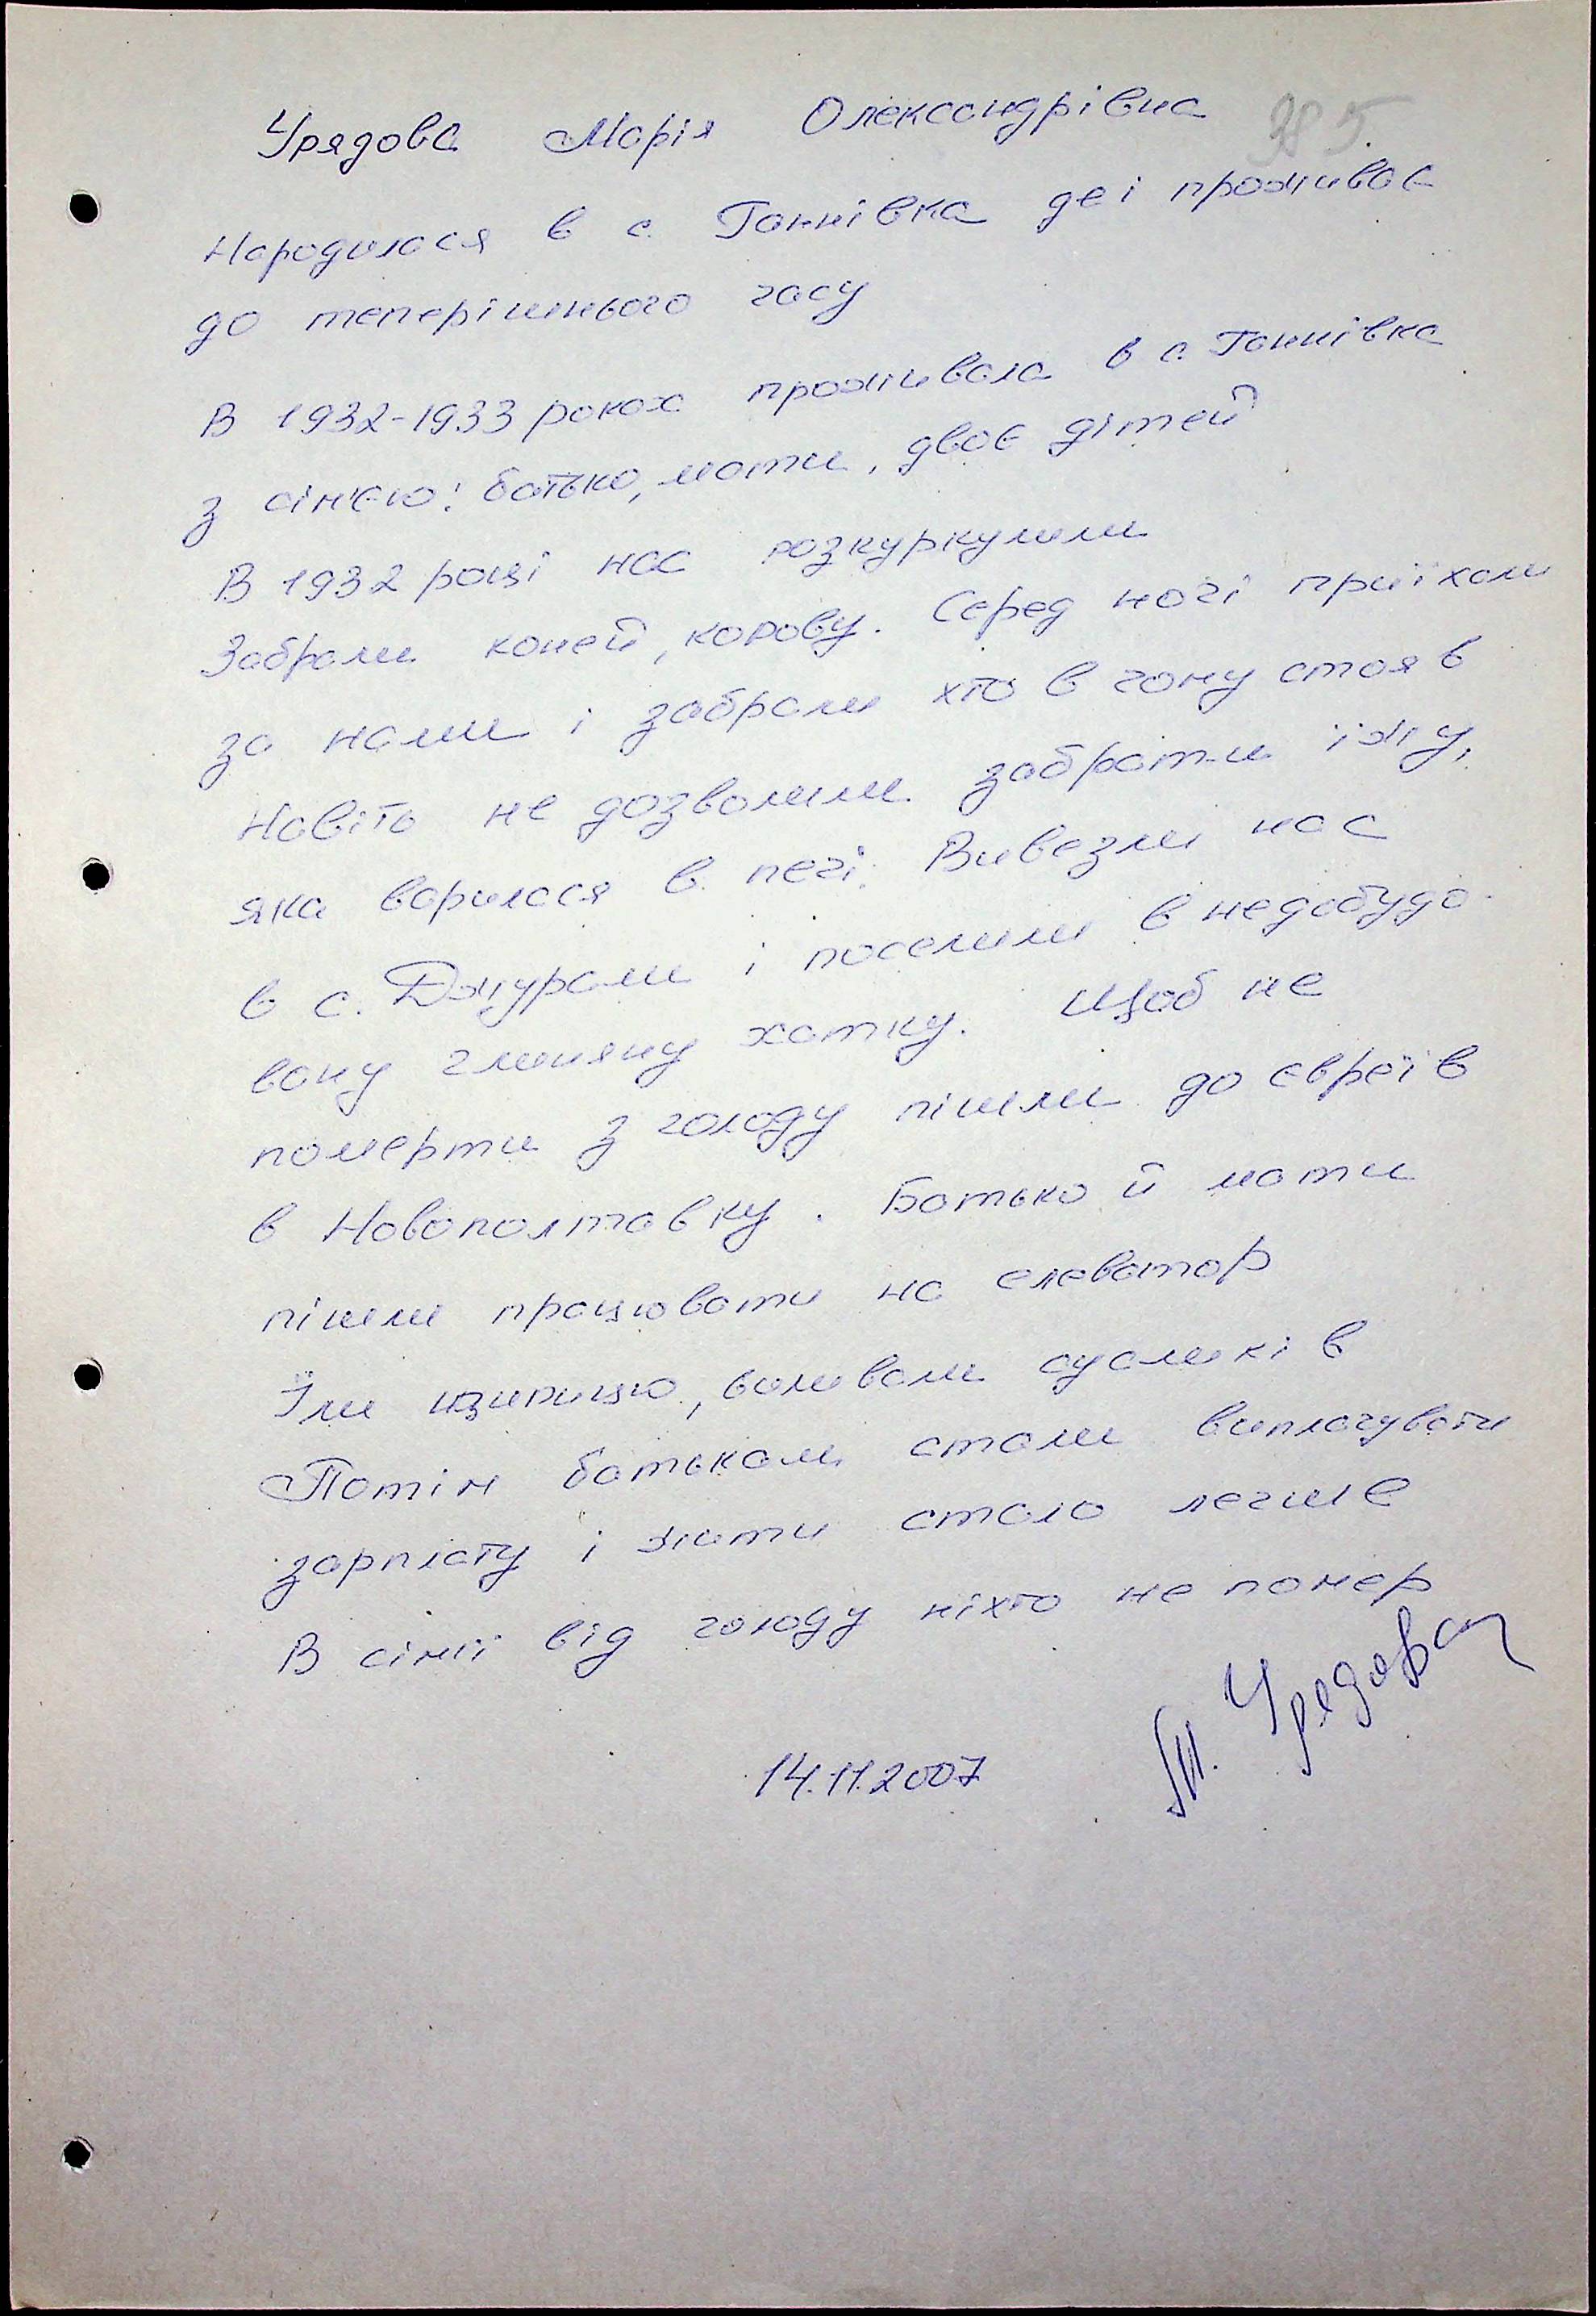 Урядова Марія Олександрівна
Народилася в с. Ганнівка де і проживає
до теперішнього часу
В 1932-1933 роках проживала в с. Ганнівка
з сім'єю: батько, мати, двоє дітей
В 1932 році нас розкуркулили
Забрали коней, корову. Серед ночі приїхали
за нами і забрали хто в чому стояв
Навіть не дозволили забрати їжу,
яка варилася в печі. Вивезли нас
в с. Джурали і поселили в недобудо-
вану глиняну хатку. Щоб не
померти з голоду пішли до євреїв
в Новополтавку. Батько й мати
пішли працювати на елеватор
Їли щирицю, виливали сусликів
Потім батькам стали виплачувати
зарплату і жити стало легше
В сімїї від голоду ніхто не помер
14.11.2007
М. Урядова